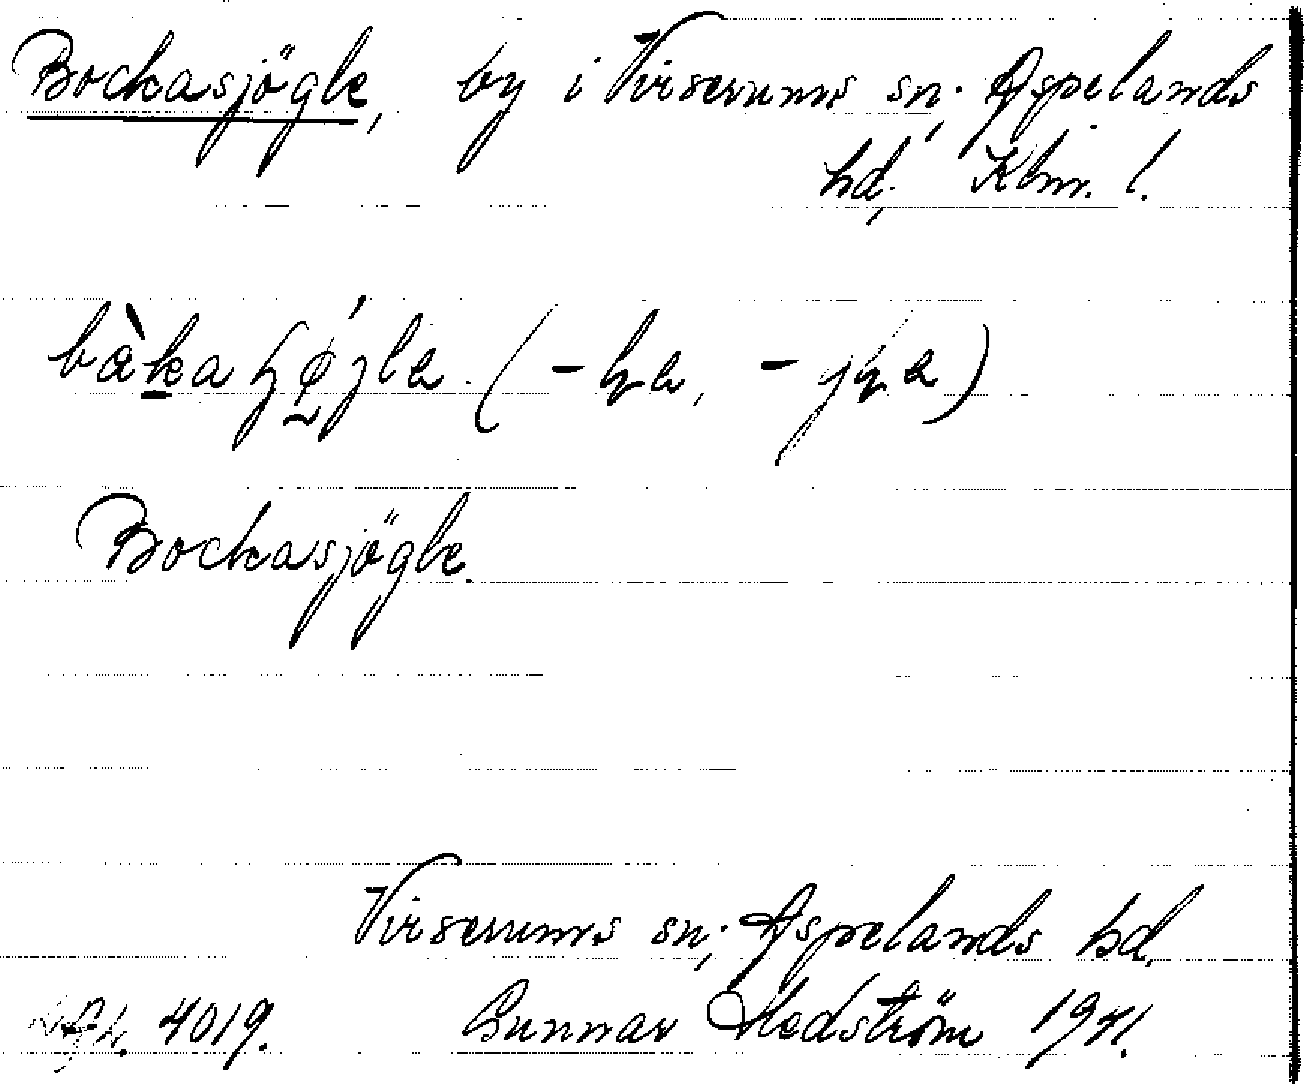 Bockasjögle, by i Virserums sn, Aspelands
hd, Klm. l.
Bockasjögle.
Virserums sn, Aspelands hd.
4019. Gunnar Hedström 1941.